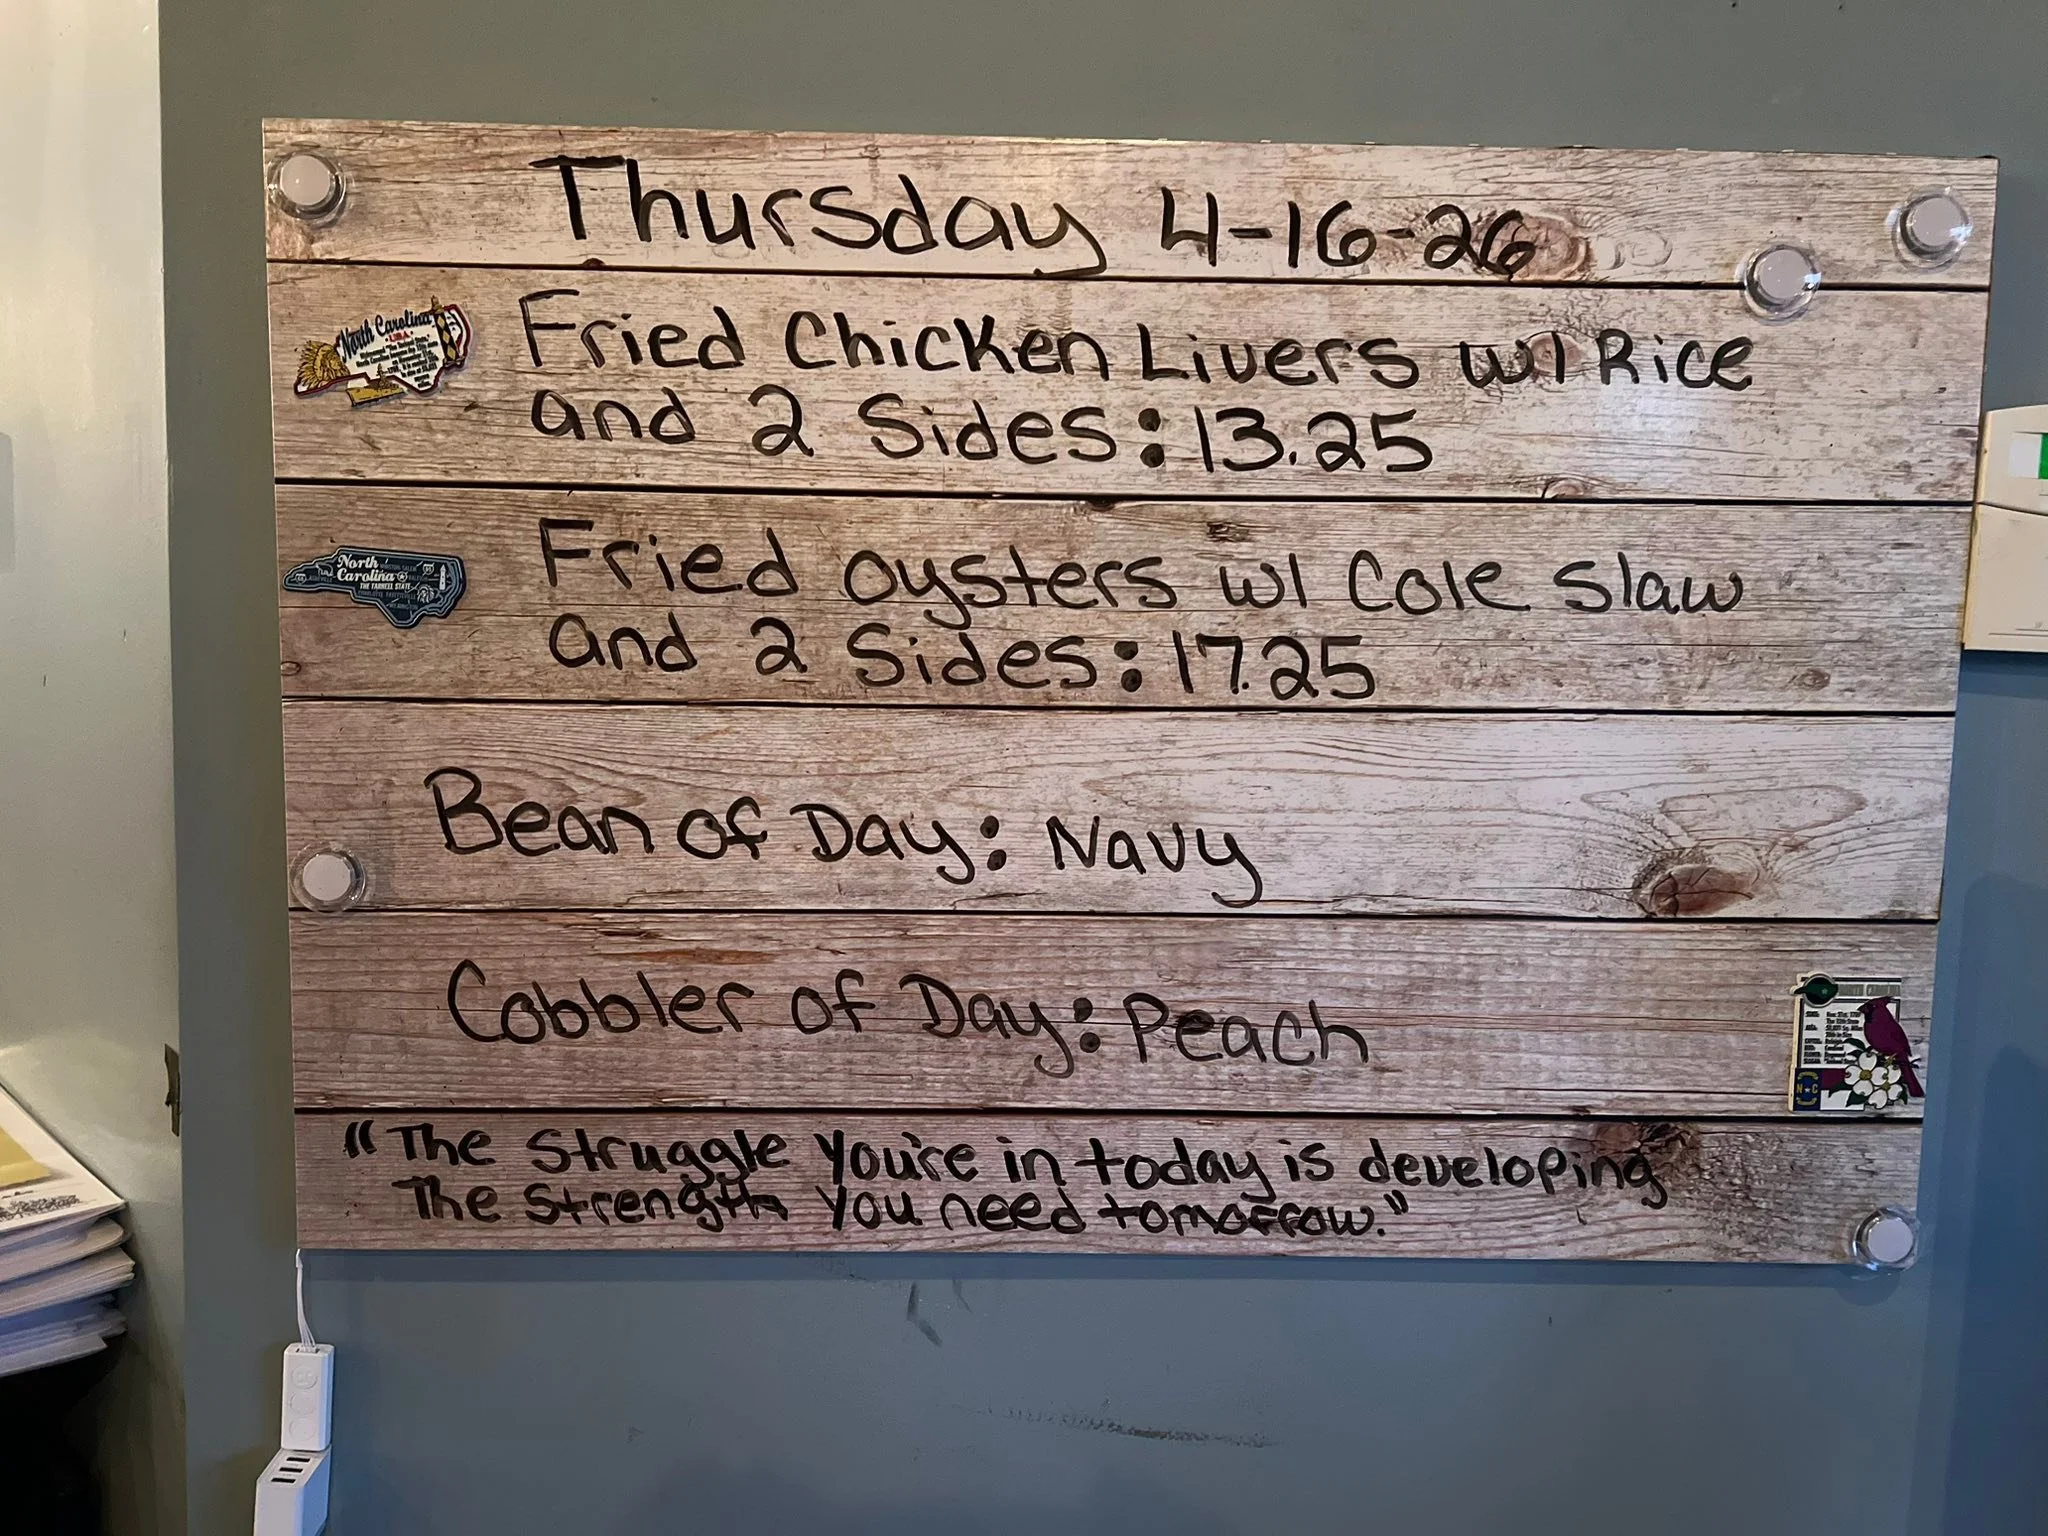 Thursday 4-16-26
Fried Chicken Livers w/ Rice
and 2 Sides: 13.25
Fried oysters w/ Cole slaw
and 2 Sides: 17.25
Bean of Day: Navy
Cobbler of Day: Peach
"The Struggle you're in today is developing
The Strength you need tomorrow."
North Carolina
U.S.A.
North
Carolina
THE TARHEEL STATE
NORTH CAROLINA
N C